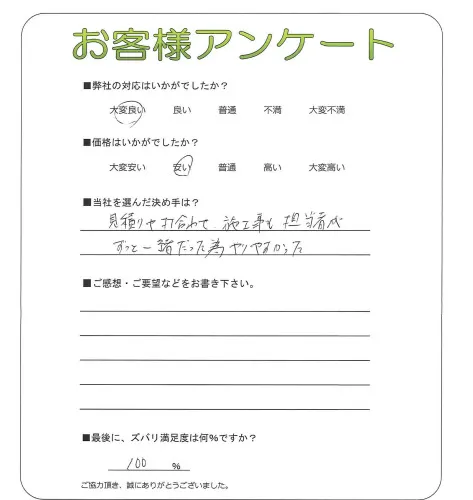 お客様アンケート
■弊社の対応はいかがでしたか？
大変良い 良い 普通 不満 大変不満
■価格はいかがでしたか？
大変安い 安い 普通 高い 大変高い
■当社を選んだ決め手は？
見積りや打合わせ、施工事も担当者が
ずっと一緒だった為やりやすかった
■ご感想・ご要望などをお書き下さい。
■最後に、ズバリ満足度は何%ですか？
100 %
ご協力頂き、誠にありがとうございました。